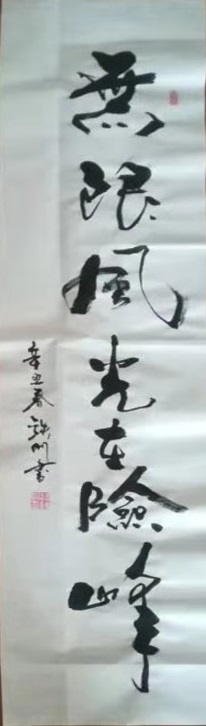 無限風光在險峰
辛丑春 書